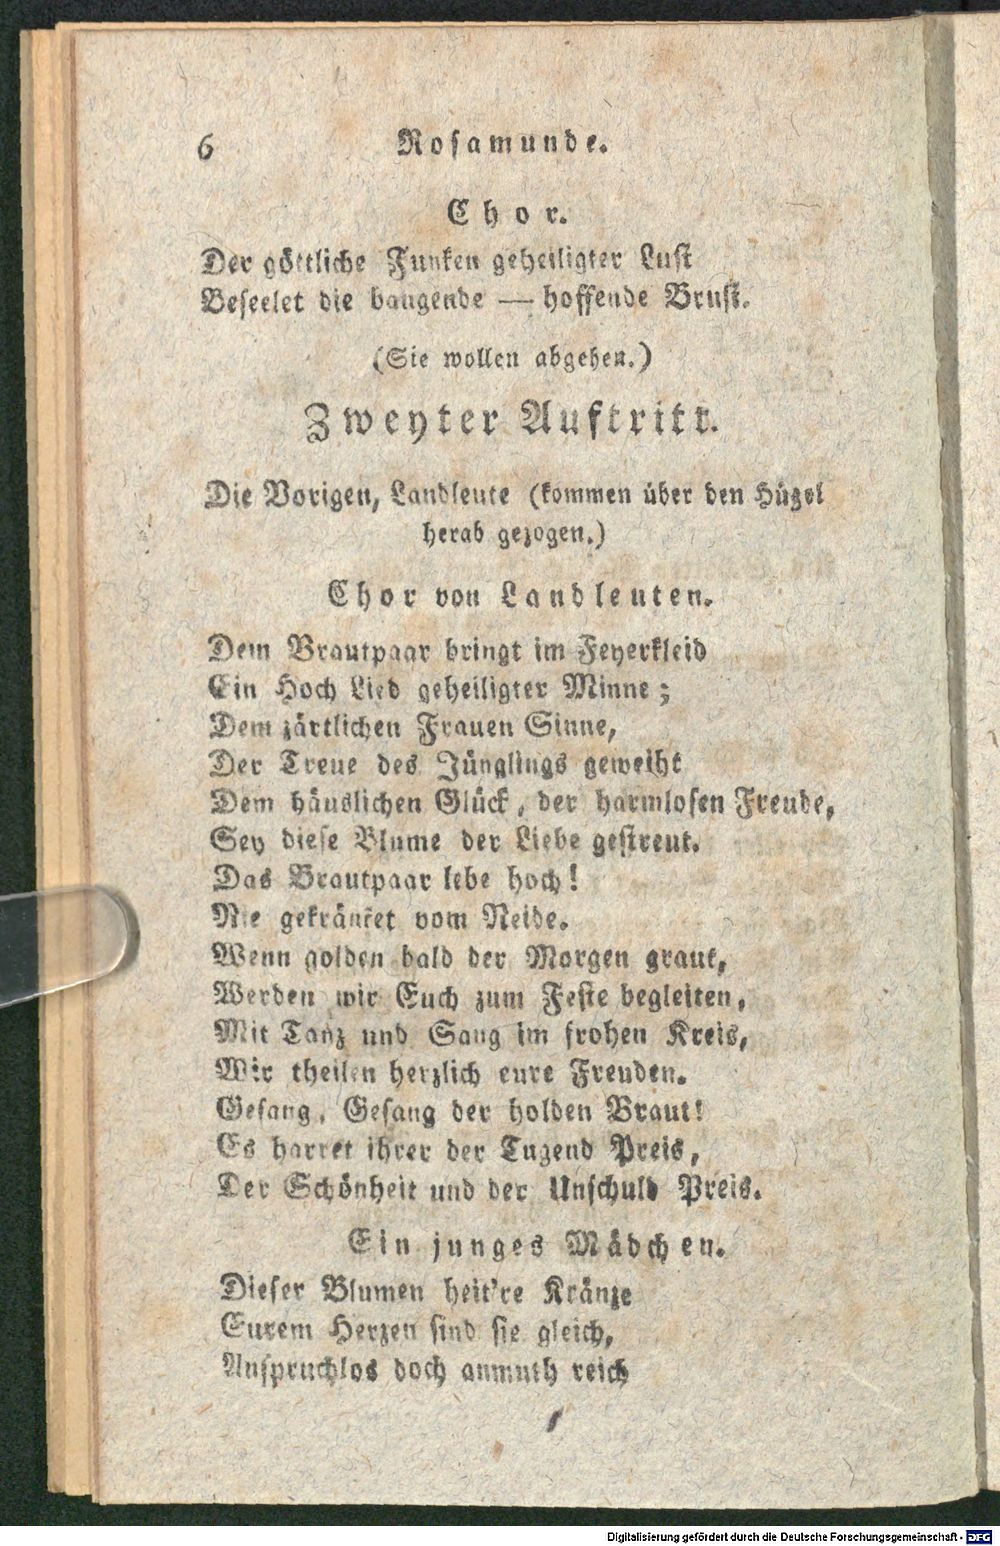 6 Rosamunde.
Chor.
Der göttliche Funken geheiligter Lust
Beseelet die bangende — hoffende Brust.
(Sie wollen abgehen.)
Zweyter Auftritt.
Die Vorigen, Landleute (kommen über den Hügel
herab gezogen.)
Chor von Landleuten.
Dem Brautpaar bringt im Feyerkleid
Ein Hoch Lied geheiligter Minne;
Dem zärtlichen Frauen Sinne,
Der Treue des Jünglings geweiht
Dem häuslichen Glück, der harmlosen Freude,
Sey diese Blume der Liebe gestreut.
Das Brautpaar lebe hoch!
Nie gekränket vom Neide.
Wenn golden bald der Morgen graut,
Werden wir Euch zum Feste begleiten,
Mit Tanz und Sang im frohen Kreis,
Wir theilen herzlich eure Freuden.
Gesang, Gesang der holden Braut!
Es harret ihrer der Tugend Preis,
Der Schönheit und der Unschuld Preis.
Ein junges Mädchen.
Dieser Blumen heit're Kränze
Eurem Herzen sind sie gleich,
Anspruchlos doch anmuth reich
Digitalisierung gefördert durch die Deutsche Forschungsgemeinschaft - DFG